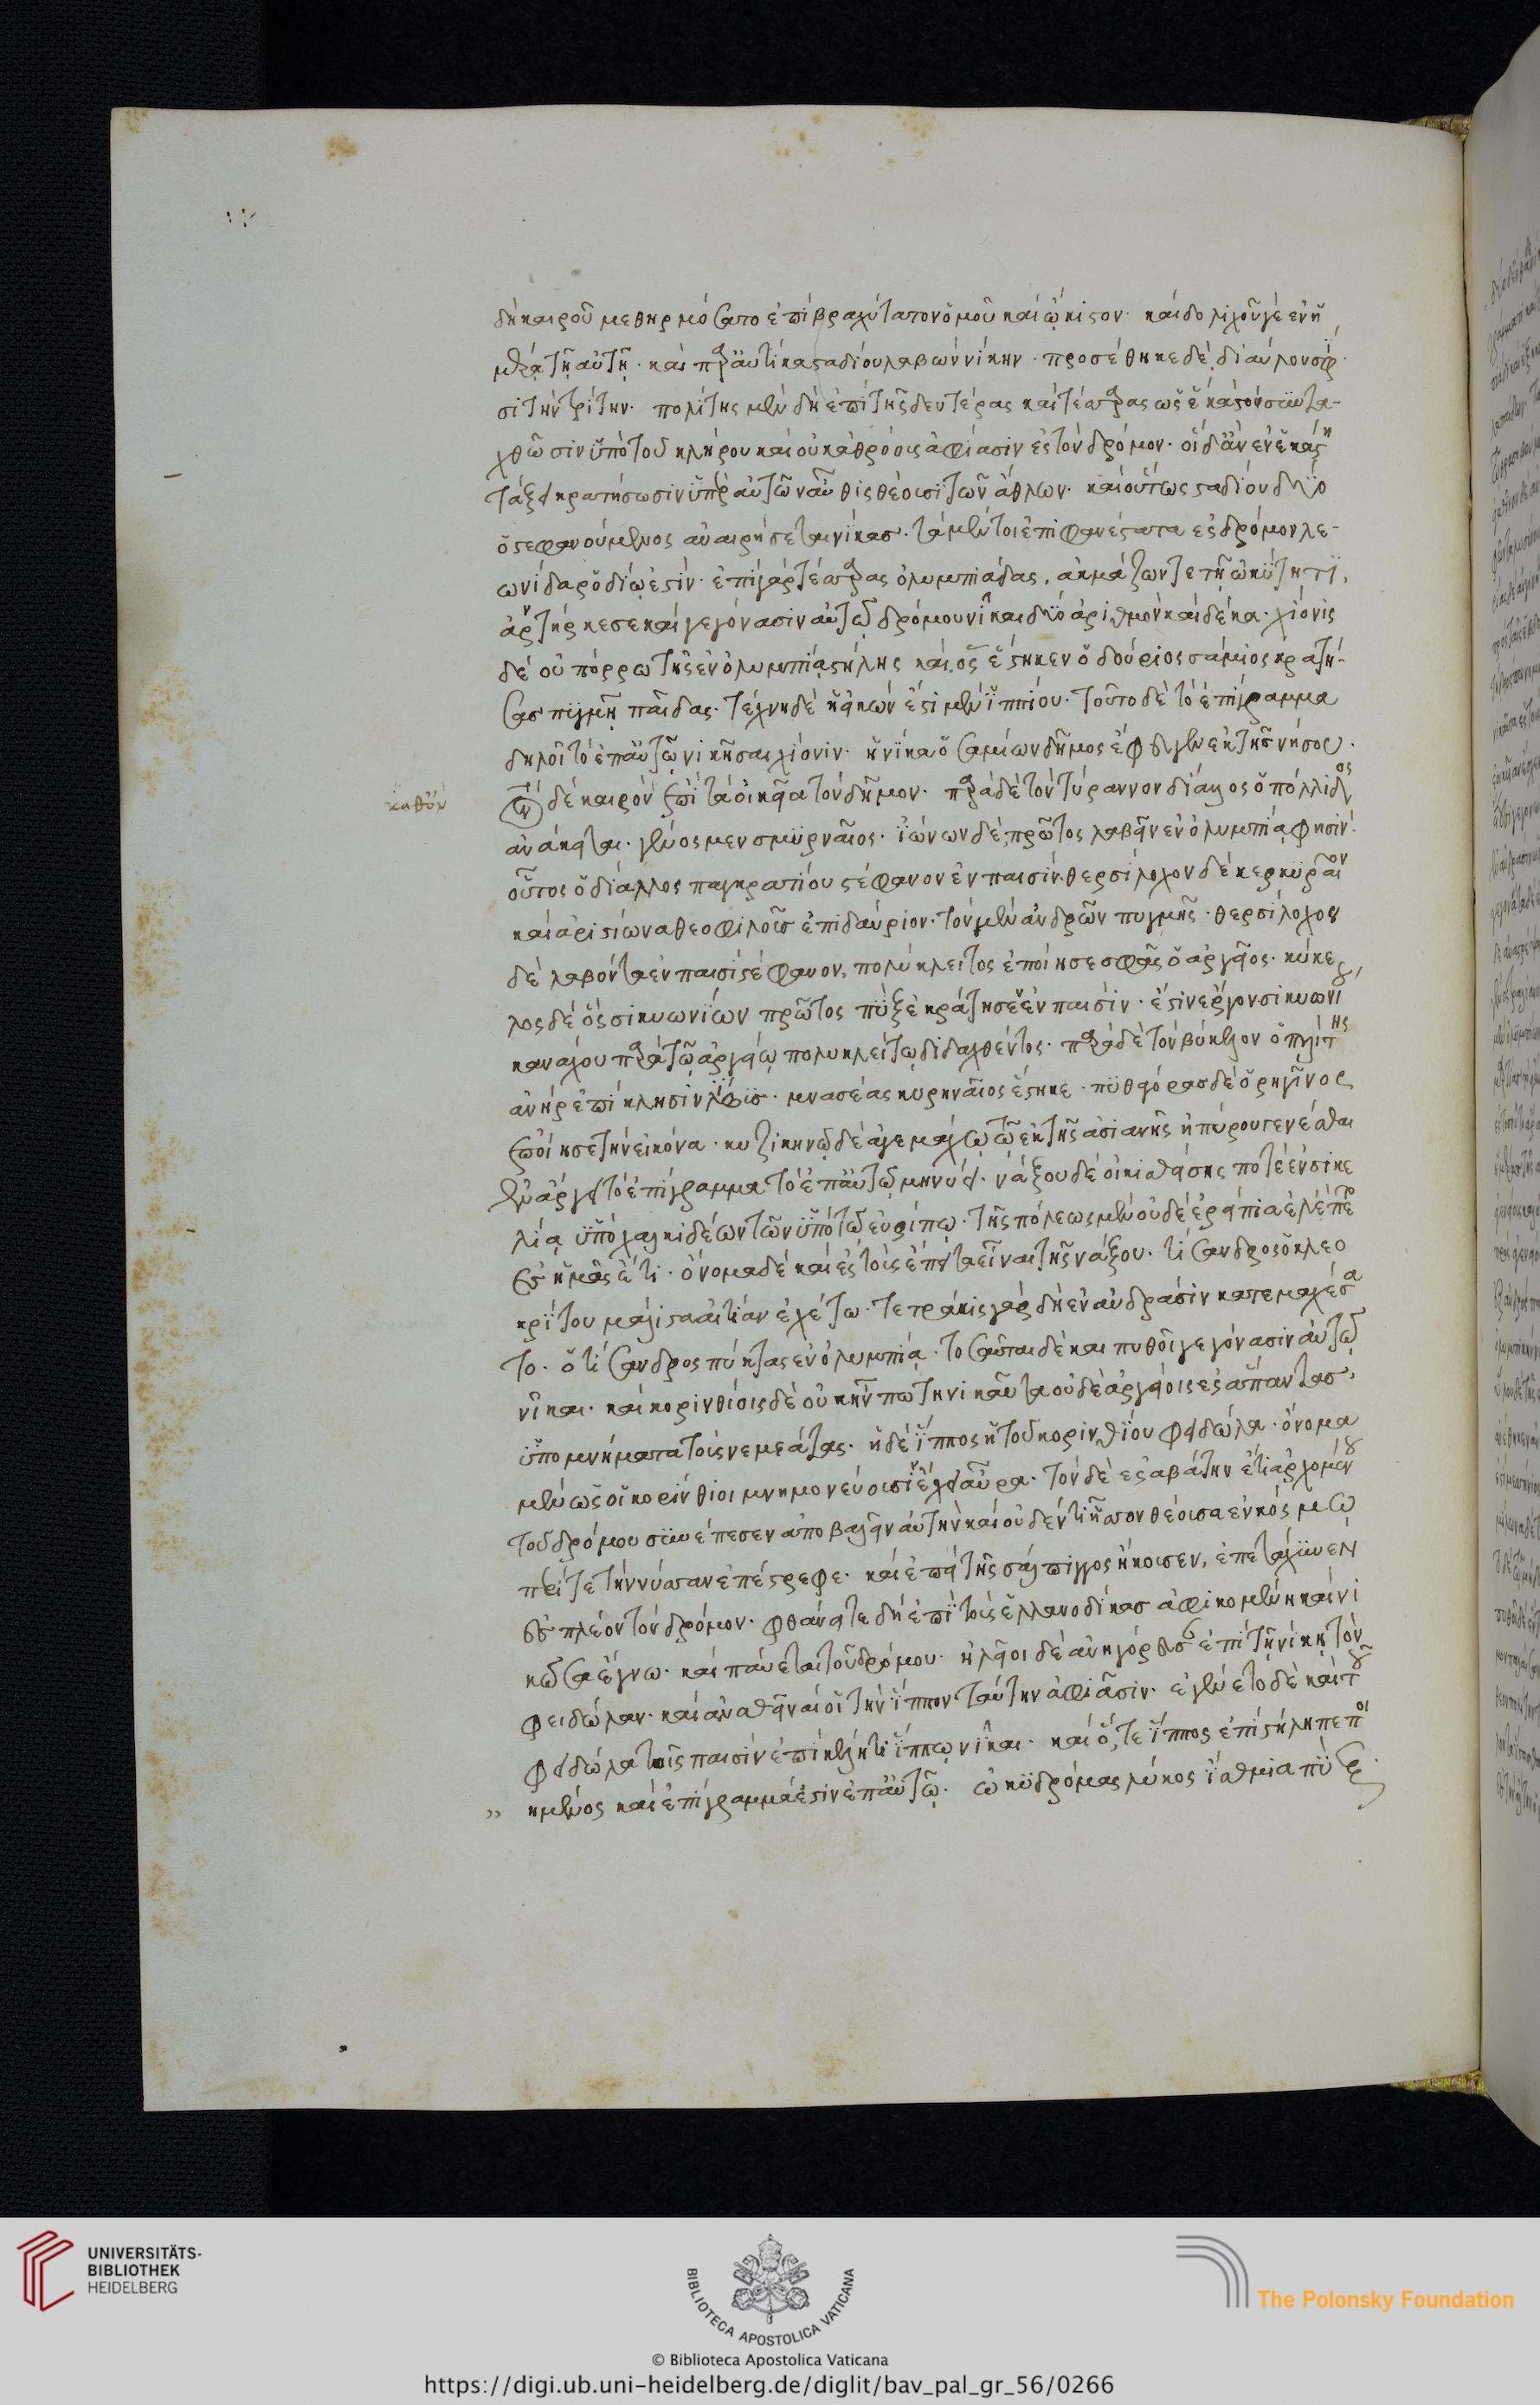 δὴ καιροῦ μεθηρμόσατο ἐπὶ βραχύτατον ὁμοῦ καὶ ὤκιστον· καὶ δολιχοῦ γε ἐν ἡ
μέρᾳ τῇ αὐτῇ· καὶ παραυτίκα σταδίου λαβὼν νίκην· προσέθηκε δὲ διαύλου σφί
σι τὴν τρίτην· πολίτης μὲν δὴ ἐπὶ τῆς δευτέρας καὶ τέσσαρας ὡς ἕκαστοι συντα-
χθῶσιν ὑπὸ τοῦ κλήρου καὶ οὐκ ἀθρόοις ἀφιᾶσιν ἐς τὸν δρόμον· οἳ δ' ἂν ἐν ἑκάστῃ
τάξει κρατήσωσιν ὑπὲρ αὐτῶν αὖθις θέουσι τῶν ἄθλων· καὶ οὕτως σταδίου δύο
ὁ στεφανούμενος ἀναιρήσεται νίκας· τὰ μέντοι ἐπιφανέστατα ἐς δρόμον λε-
ωνίδα ῥοδίῳ ἐστίν· ἐπὶ γὰρ τέσσαρας ὀλυμπιάδας, ἀκμάζων τε τῇ ὠκύτητι,
ἀντήρκεσε καὶ γεγόνασιν αὐτῷ δρόμου νῖκαι δύο ἀριθμὸν καὶ δέκα· χίονις
δὲ οὐ πόρρω τῆς ἐν ὀλυμπίᾳ στήλης καὶ ὃς ἕστηκεν ὁ δούριος σάμιος κρατή-
σας πυγμῇ παῖδας· τέχνη δὲ ἡ εἰκών ἐστι μὲν ἱππίου· τοῦτο δὲ τὸ ἐπίγραμμα
δηλοῖ τὸ ἐπ' αὐτῷ νικῆσαι χίονιν· ἡνίκα ὁ σαμίων δῆμος ἔφευγεν ἐκ τῆς νήσου·
καθὃν
τὸν δὲ καιρὸν ἐπὶ τὰ οἰκεῖα τὸν δῆμον· παρὰ δὲ τὸν τύραννον δίαλλος ὁ πόλλιδος
ἀνάκειται· γένος μὲν σμυρναῖος· ἰώνων δὲ πρῶτος λαβεῖν ἐν ὀλυμπίᾳ φησίν·
οὗτος ὁ δίαλλος παγκρατίου στέφανον ἐν παισίν· θερσίλοχον δὲ κερκυραῖον
καὶ ἀριστίωνα θεοφίλους ἐπιδαύριον· τὸν μὲν ἀνδρῶν πυγμῆς· θερσίλοχον
δὲ λαβόντα ἐν παισὶ στέφανον, πολύκλειτος ἐποίησε σφᾶς ὁ ἀργεῖος· κύκε
λος δὲ ὃς σικυωνίων πρῶτος πὺξ ἐκράτησεν ἐν παισίν· ἔστιν ἔργον σικυωνίου
καναχου παρὰ τῷ ἀργείῳ πολυκλείτῳ διδαχθέντος· παρὰ δὲ τὸν βύκελον ὁπλίτης
ἀνὴρ ἐπίκλησιν λίβυς· μνασέας κυρηναῖος ἕστηκε· πυθαγόρας δὲ ὁ ρηγῖνος
ἐποίησε τὴν εἰκόνα· κυζικηνῷ δὲ ἀγεμάχῳ τῷ ἐκ τῆς ἀσιανῆς ἠπείρου γενέσθαι
ἐν ἄργει τὸ ἐπίγραμμα τὸ ἐπ' αὐτῷ μηνύει· νάξου δὲ οἰκισθείσης ποτὲ ἐν σικε
λίᾳ ὑπὸ χαλκιδέων τῶν ὑπὸ τῷ εὐρίπῳ· τῆς πόλεως μὲν οὐδὲ ἐρείπια ἐλείπετο
ἐς ἡμᾶς ἔτι· ὄνομα δὲ καὶ ἐς τοὺς ἔπειτα εἶναι τῆς νάξου· τίσανδρος ὁ κλεο
κρίτου μάλιστα αἰτίαν ἐχέτω· τετράκις γὰρ δὴ ἐν ἀνδράσιν κατεμαχέσα
το· ὁ τίσανδρος πύκτας ἐν ὀλυμπίᾳ· τοσαῦται δὲ καὶ πυθοῖ γεγόνασιν αὐτῷ
νῖκαι· καὶ κορινθίοις δὲ οὐκ ἦν πω τηνικαῦτα οὐδὲ ἀργείοις ἐς ἅπαντας
ὑπομνήματα τοὺς νεμεάτας· ἡ δὲ ἵππος ἡ τοῦ κορινθίου φειδώλα· ὄνομα
μὲν ὡς οἱ κορίνθιοι μνημονεύουσιν ἔχει αὔρα· τὸν δὲ ἐς ἀβάτην ἔτι ἀρχομένου
τοῦ δρόμου συνέπεσεν ἀποβαλεῖν αὐτὴν καὶ οὐδέν τι ἧσσον θέουσα ἐν κόσμῳ
περί τε τὴν νύσσαν ἐπέστρεφε· καὶ ἐπεὶ τῆς σάλπιγγος ἤκουσεν, ἐπετάχυνεν
ἐς πλέον τὸν δρόμον· φθάνει τε δὴ ἐπὶ τοὺς ἑλλανοδίκας ἀφικομένη καὶ νι
κῶσα ἔγνω· καὶ παύεται τοῦ δρόμου· ἠλεῖοι δὲ ἀνηγόρευσαν ἐπὶ τῇ νίκῃ τὸν
φειδώλαν· καὶ ἀναθεῖναι οἱ τὴν ἵππον ταύτην ἀφιᾶσιν· ἐγένετο δὲ καὶ τοῦ
φειδώλα τοῖς παισὶν ἐπὶ κέλητι ἵππῳ νῖκαι· καὶ ὅ, τε ἵππος ἐπὶ στήλῃ πεποι
ημένος καὶ ἐπίγραμμά ἐστιν ἐπ' αὐτῷ· ὠκυδρόμας λύκος ἴσθμια πὺ
UNIVERSITÄTS-
BIBLIOTHEK
HEIDELBERG
BIBLIOTECA APOSTOLICA VATICANA
The Polonsky Foundation
© Biblioteca Apostolica Vaticana
https://digi.ub.uni-heidelberg.de/diglit/bav_pal_gr_56/0266